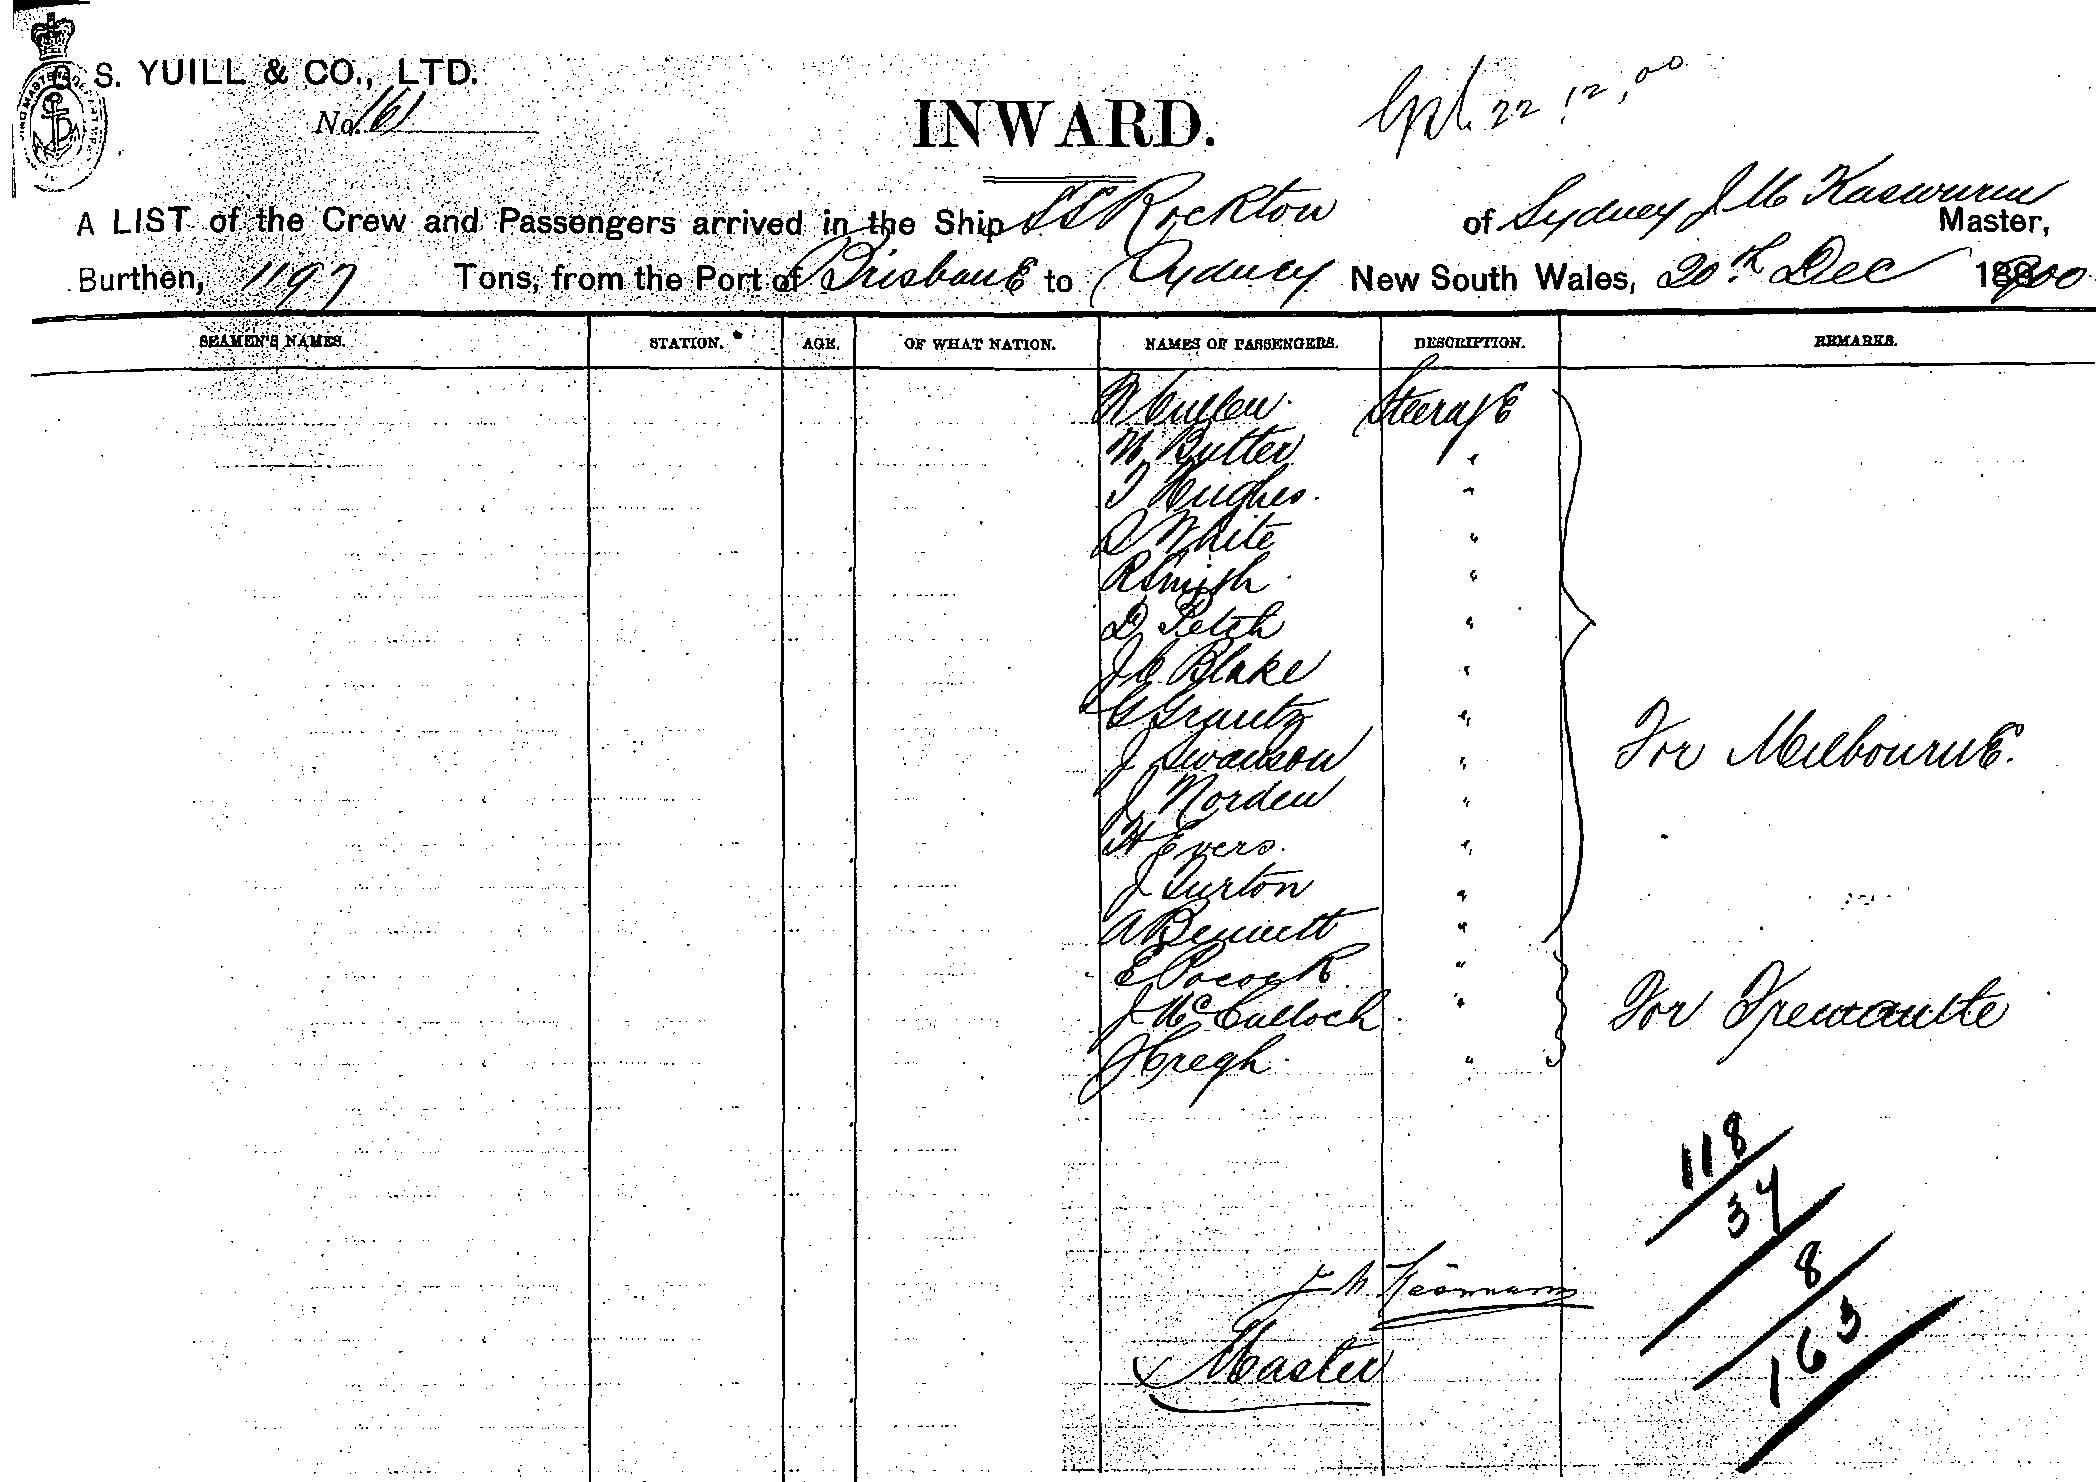 S. YUILL & CO., LTD.
No. 161
INWARD.
22.12.00
A LIST of the Crew and Passengers arrived in the Ship SS Rockton of Sydney J M Master,
Burthen, 1197 Tons, from the Port of Brisbane to Sydney New South Wales, 20th Dec 1900
SEAMEN'S NAMES. STATION. AGE. OF WHAT NATION. NAMES OF PASSENGERS. DESCRIPTION. REMARKS.
Cullen Steerage
W Butter "
T Hughes "
White "
R Smith "
D Petch "
J C Blake "
G Grantz "
J Swanson "
J Norden "
H Evers "
J Turton "
A Bennett "
For Melbourne.
E Pocock "
J McCulloch "
For Fremantle
J Cregh "
118
34
8
163
J M
Master